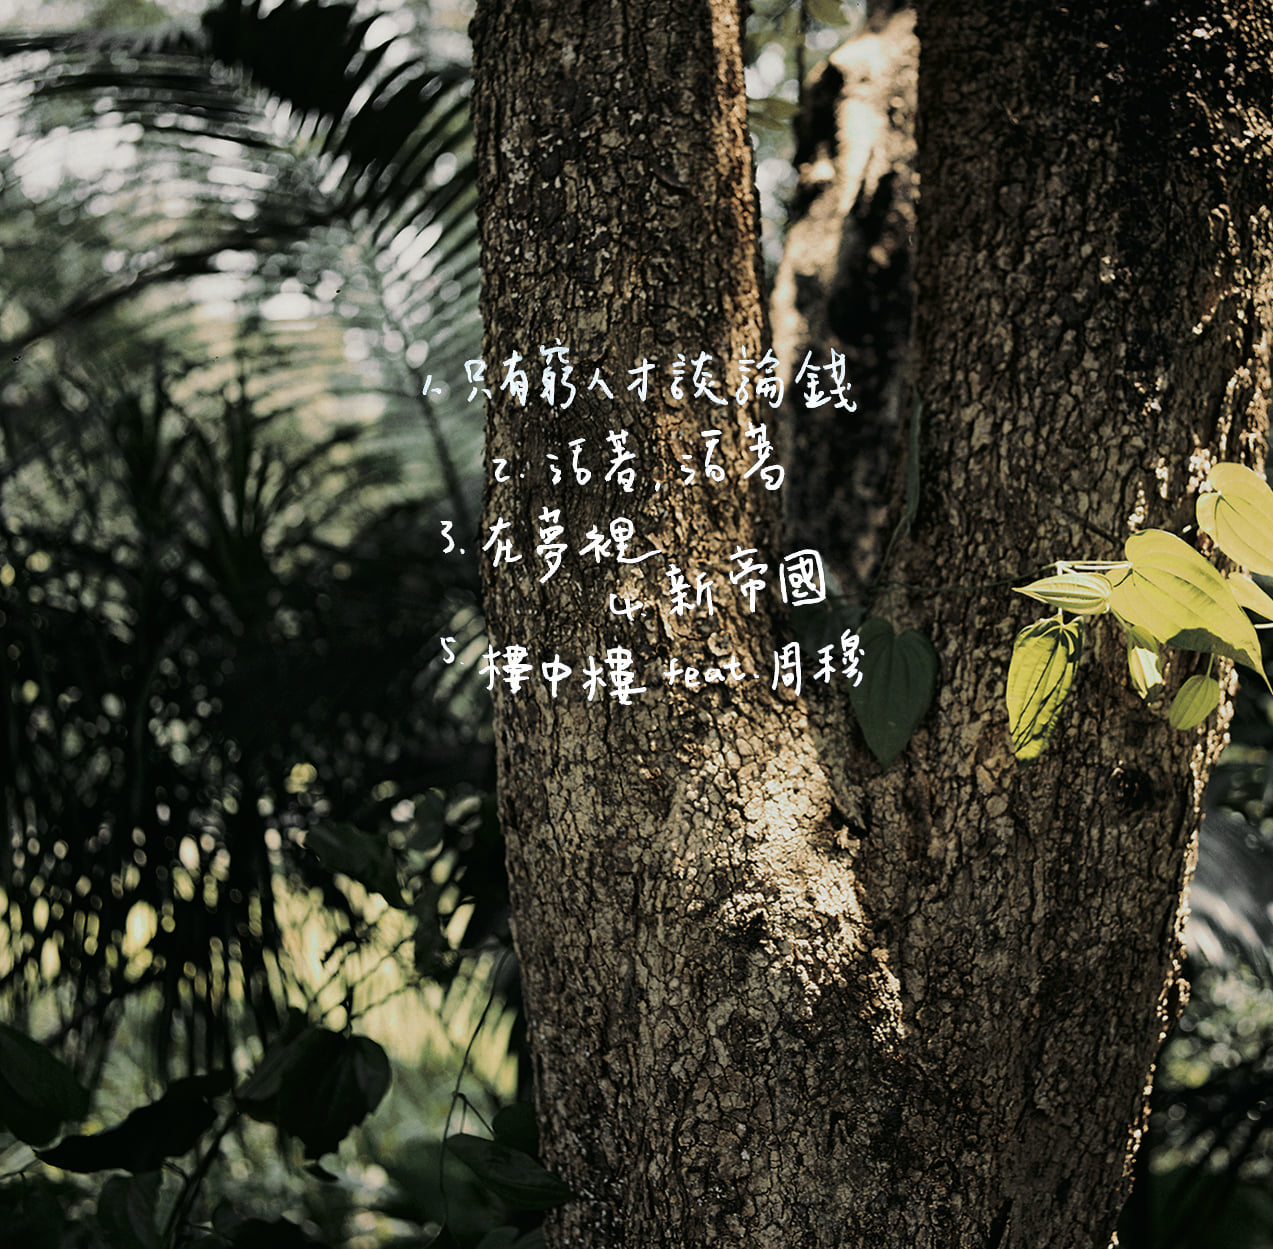 1. 只有窮人才談論錢
2. 活著, 活著
3. 在夢裡
4. 新帝國
5. 樓中樓 feat. 周穆